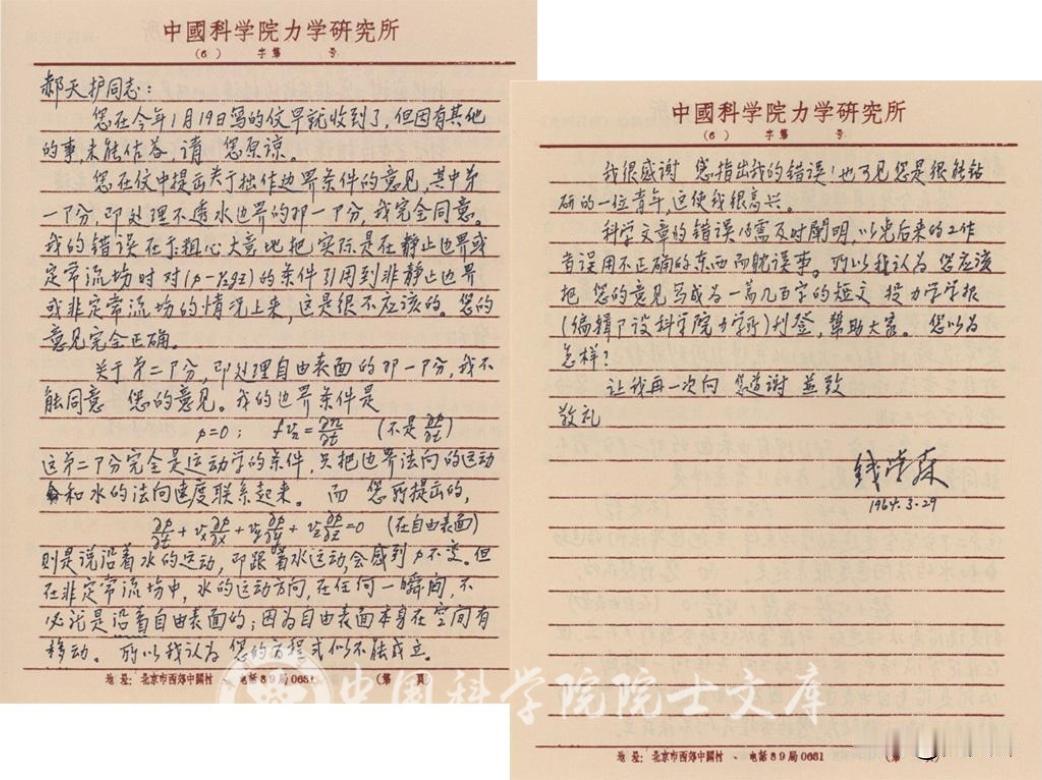 中國科学院力学研究所
(6) 字第 号
郝天护同志：
您在今年1月19日写的信早就收到了，但因有其他
的事，未能作答，请 您原谅。
您在信中提出关于拙作边界条件的意见，其中第
一部分，即处理不透水边界的那一部分，我完全同意。
我的错误在于粗心大意地把实际是在静止边界或
定常流场时对(p-γgz)的条件引用到非静止边界
或非定常流场的情况上来，这是很不应该的。您的
意见完全正确。
关于第二部分，即处理自由表面的那一部分，我不
能同意 您的意见。我的边界条件是
p=0； fvₙ=∂n/∂t (不是∂p/∂t)
这第二部分完全是运动学的条件，只把边界法向的运动
和水的法向速度联系起来。而 您所提出的，
∂p/∂t+vₓ∂p/∂x+vᵧ∂p/∂y+v_z∂p/∂z=0 (在自由表面)
则是说沿着水的运动，即跟着水运动，会感到p不变。但
在非定常流场中，水的运动方向，在任何一瞬间，不
必讬是沿着自由表面的；因为自由表面本身在空间有
移动。所以我认为 您的方程式似不能成立。
地址：北京市西郊中關村 、电話89局0631 (第 頁)
中國科学院力学研究所
(6) 字第 号
我很感谢 您指出我的错误！也可见您是很能钻
研的一位青年，这使我很高兴。
科学文章的错误必需及时阐明，以免后来的工作
者误用不正确的东西而耽误事。所以我认为 您应该
把 您的意见写成为一篇几百字的短文 投力学学报
(编辑部设科学院力学所)刊登，幫助大家。 您以为
怎样？
让我再一次向 您道谢 並致
敬礼
钱学森
1964.3.29
地址：北京市西郊中關村 、电話89局0631 (第
中国科学院院士文库